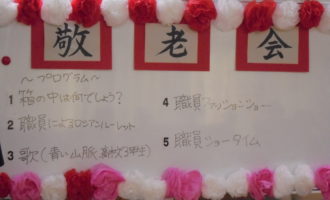 敬老会
～プログラム～
1 箱の中は何でしょう?
2 職員によるロシアンルーレット
3 歌(青い山脈、高校3年生)
4 職員ファッションショー
5 職員ショータイム